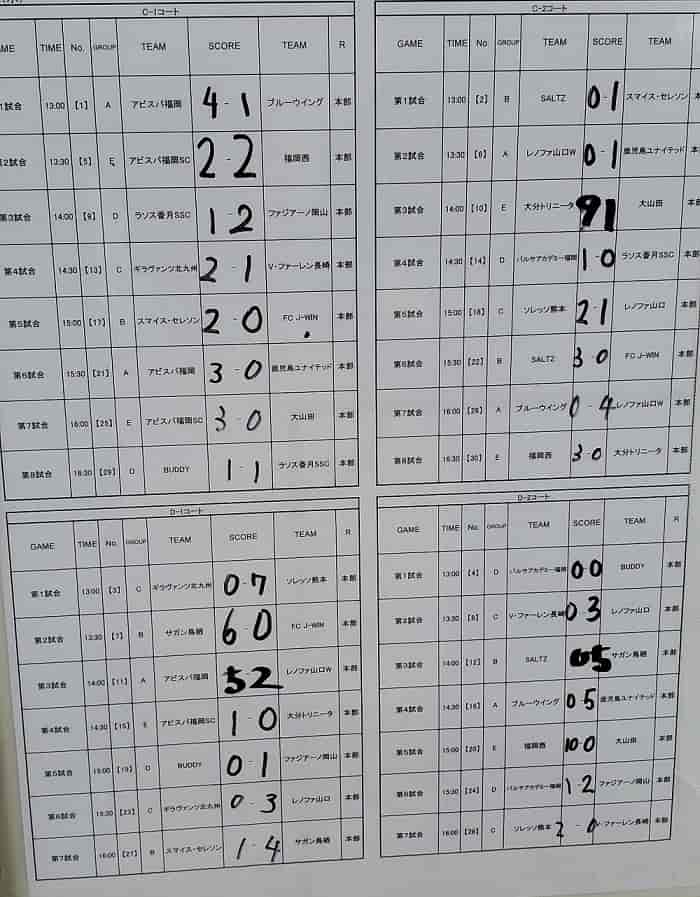 C-1コート
GAME TIME No. GROUP TEAM SCORE TEAM R
1試合 13:00 【1】 A アビスパ福岡 4-1 ブルーウイング 本部
第2試合 13:30 【5】 E アビスパ福岡SC 2-2 福岡西 本部
第3試合 14:00 【9】 D ラソス香月SSC 1-2 ファジアーノ岡山 本部
第4試合 14:30 【13】 C ギラヴァンツ北九州 2-1 V・ファーレン長崎 本部
第5試合 15:00 【17】 B スマイス・セレソン 2-0 FC J-WIN 本部
第6試合 15:30 【21】 A アビスパ福岡 3-0 鹿児島ユナイテッド 本部
第7試合 16:00 【25】 E アビスパ福岡SC 3-0 大山田 本部
第8試合 16:30 【29】 D BUDDY 1-1 ラソス香月SSC 本部
C-2コート
GAME TIME No. GROUP TEAM SCORE TEAM
第1試合 13:00 【2】 B SALTZ 0-1 スマイス・セレソン
第2試合 13:30 【6】 A レノファ山口W 0-1 鹿児島ユナイテッド 本
第3試合 14:00 【10】 E 大分トリニータ 91 大山田 本部
第4試合 14:30 【14】 D バルサアカデミー福岡 1-0 ラソス香月SSC 本部
第5試合 15:00 【18】 C ソレッソ熊本 2-1 レノファ山口 本部
第6試合 15:30 【22】 B SALTZ 3-0 FC J-WIN 本部
第7試合 16:00 【26】 A ブルーウイング 0-4 レノファ山口W 本部
第8試合 16:30 【30】 E 福岡西 3-0 大分トリニータ 本部
D-1コート
GAME TIME No. GROUP TEAM SCORE TEAM R
第1試合 13:00 【3】 C ギラヴァンツ北九州 0-7 ソレッソ熊本 本部
第2試合 13:30 【7】 B サガン鳥栖 6-0 FC J-WIN 本部
第3試合 14:00 【11】 A アビスパ福岡 52 レノファ山口W 本部
第4試合 14:30 【15】 E アビスパ福岡SC 1-0 大分トリニータ 本部
第5試合 15:00 【19】 D BUDDY 0-1 ファジアーノ岡山 本部
第6試合 15:30 【23】 C ギラヴァンツ北九州 0-3 レノファ山口 本部
第7試合 16:00 【27】 B スマイス・セレソン 1-4 サガン鳥栖 本部
D-2コート
GAME TIME No. GROUP TEAM SCORE TEAM R
第1試合 13:00 【4】 D バルサアカデミー福岡 00 BUDDY 本部
第2試合 13:30 【8】 C V・ファーレン長崎 03 レノファ山口 本部
第3試合 14:00 【12】 B SALTZ 05 サガン鳥栖 本部
第4試合 14:30 【16】 A ブルーウイング 05 鹿児島ユナイテッド 本部
第5試合 15:00 【20】 E 福岡西 10-0 大山田 本部
第6試合 15:30 【24】 D バルサアカデミー福岡 1-2 ファジアーノ岡山 本部
第7試合 16:00 【28】 C ソレッソ熊本 2-0 V・ファーレン長崎 本部